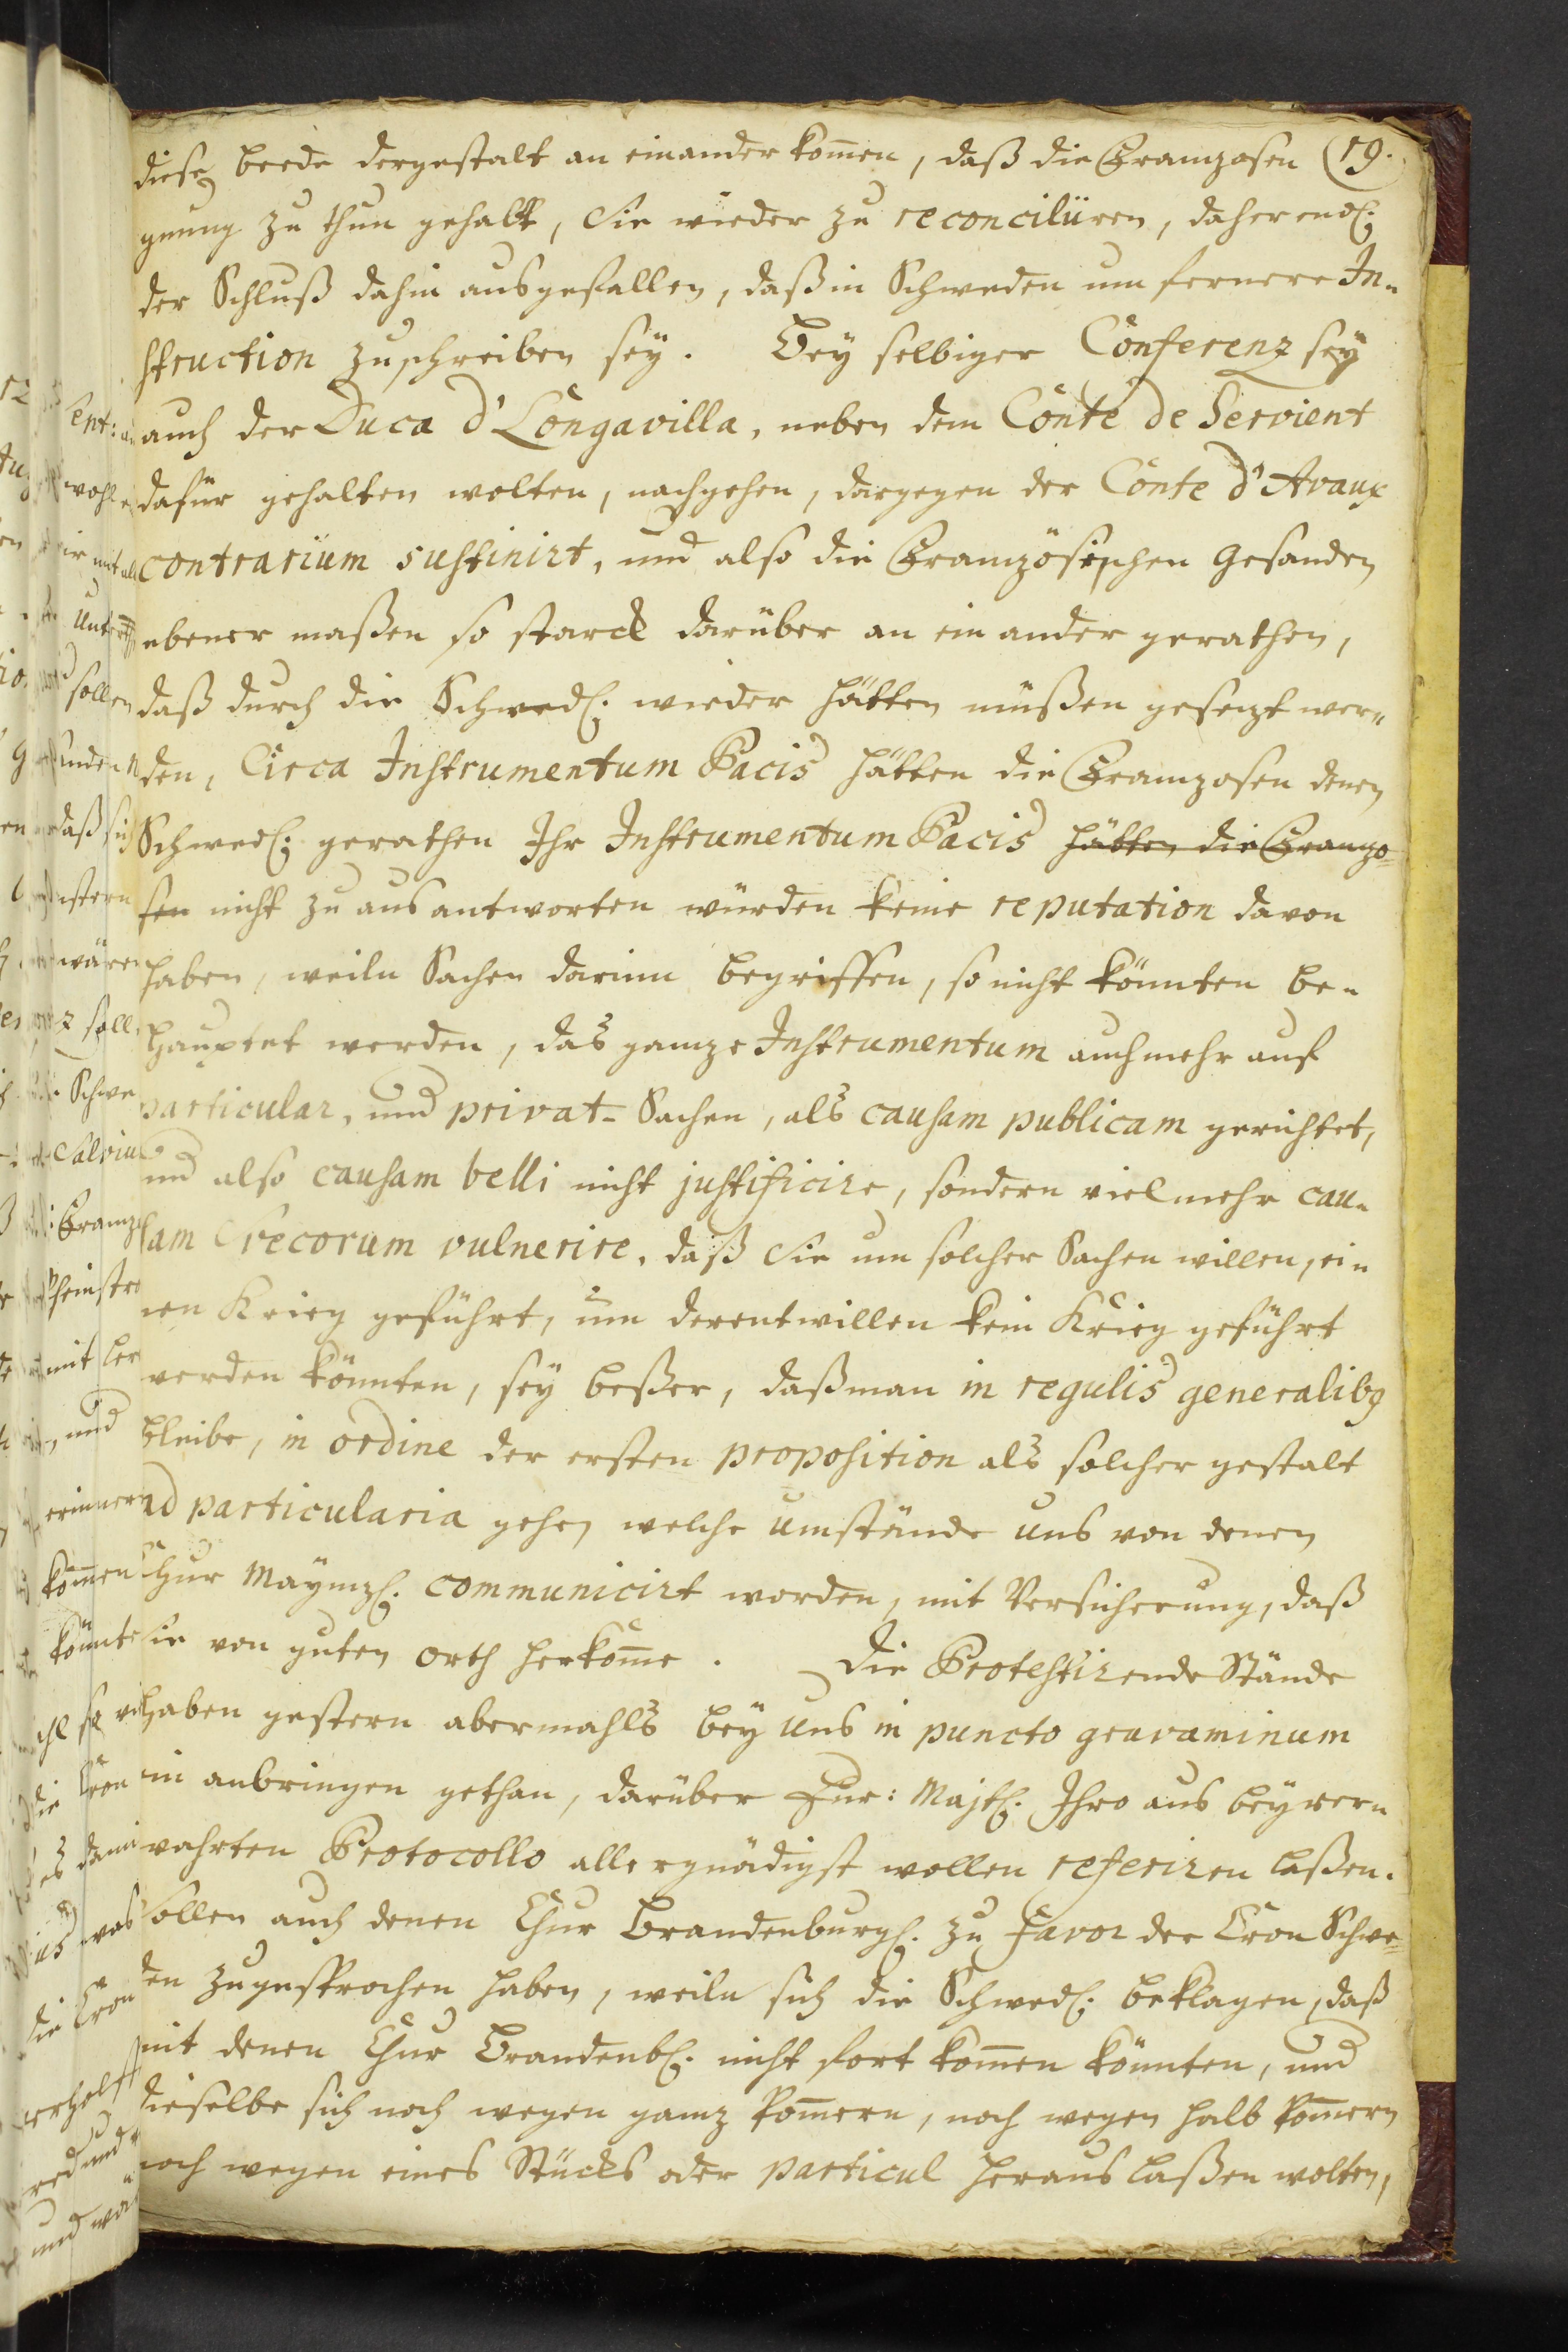 diese beede dergestalt an einander komen, daß die Franzosen (19.
gnung zu thun gehabt, Sie wieder zu reconciliiren, daher endl.
der Schluß dahin ausgefallen, daß in Schweden um fernere In-
struction zuschreiben sey. Bey selbiger Conferenz sey
auch der Duca d'Longavilla, neben dem Conte de Servient
dafür gehalten wolten, nachgehen, dargegen der Conte d'Avaux
contrarium sustinirt, und also die Französischen Gesanden
ebener maßen so starck darüber an ein ander gerathen,
daß durch die Schwed. wieder hätten müßen gesezt wer-
den, Circa Instrumentum Pacis hätten die Franzosen denen
Schwed. gerathen Ihr Instrumentum Pacis hätten die Franzo-
sen nicht zu aus antworten würden keine reputation davon
haben, weiln Sachen darinn begriffen, so nicht könnten be-
hauptet werden, das ganze Instrumentum auch mehr auf
particular, und privat-Sachen, als causam publicam gerichtet,
und also causam belli nicht justificire, sondern viel mehr cau-
sam Svecorum vulnerire, daß Sie um solcher Sachen willen, ei-
nen Krieg geführt, um derentwillen kein Krieg geführt
werden könnten, sey beßer, daß man in regulis generalibg
bleibe, in ordine der ersten proposition als solcher gestalt
ad particularia gehen welche umstände uns von denen
Chur Maynz. communicirt worden, mit Versicherung, daß
sie von guten orth herkome. Die Protestirende Stände
haben gestern abermahls bey uns in puncto gravaminum
ein anbringen gethan, darüber Eur: Majt. Ihro aus beyver-
wahrten Protocollo allergnädigst wollen referiren laßen.
sollen auch denen Chur Brandenburg. zu favor der Cron Schwe-
den zugesprochen haben, weiln sich die Schwed. beklagen, daß
mit denen Chur Brandenb. nicht fort komen könnten, und
dieselbe sich noch wegen ganz Pomern, noch wegen halb Pomern
noch wegen eines Stücks oder particul heraus laßen wolten,